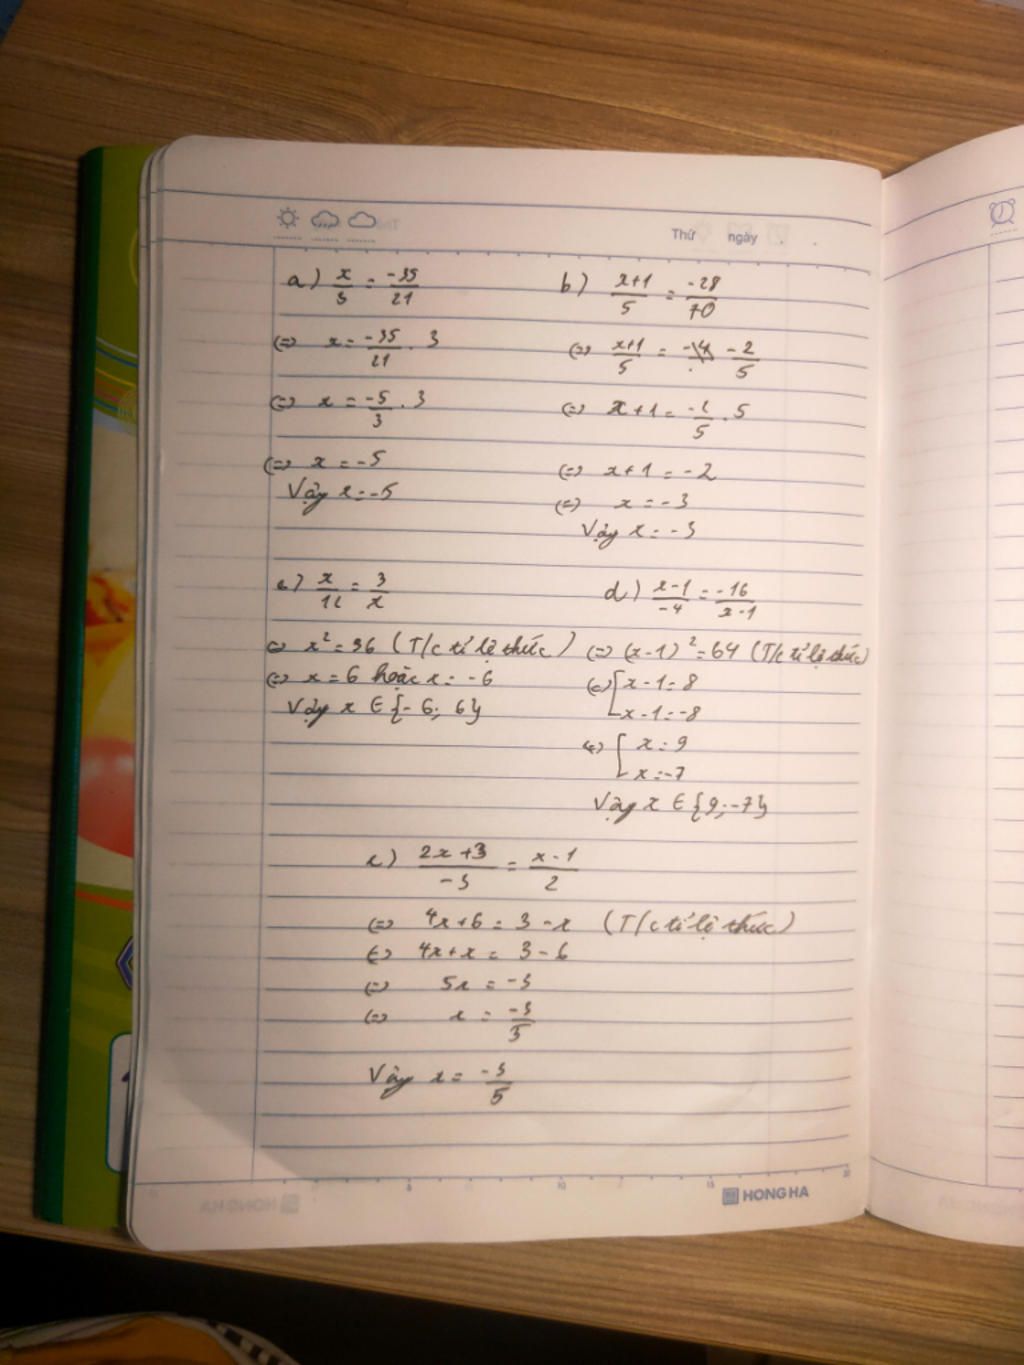 Thứ ngày
a) x/3 = -35/21
(=) x = -35/21 . 3
(=) x = -5/3 . 3
(=) x = -5
Vậy x = -5
b) x+1/5 = -28/70
(=) x+1/5 = -2/5
(=) x+1 = -2/5 . 5
(=) x+1 = -2
(=) x = -3
Vậy x = -3
c) x/12 = 3/x
(=) x² = 36 (T/c tỉ lệ thức)
(=) x = 6 hoặc x = -6
Vậy x ∈ {-6; 6}
d) x-1/-4 = -16/x-1
(=) (x-1)² = 64 (T/c tỉ lệ thức)
(=) [ x-1 = 8
x-1 = -8
(=) [ x = 9
x = -7
Vậy x ∈ {9; -7}
2x+3/-3 = x-1/2
(=) 4x+6 = 3-x (T/c tỉ lệ thức)
(=) 4x+x = 3-6
(=) 5x = -3
(=) x = -3/5
Vậy x = -3/5
HONG HA